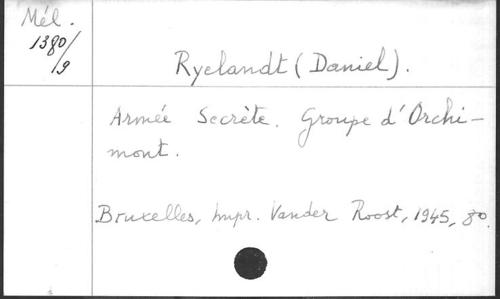 Mél.
1380/9
Ryelandt (Daniel).
Armée Secrète. Groupe d'Orchi-
mont.
Bruxelles, Impr. Vander Roost, 1945, 8°.